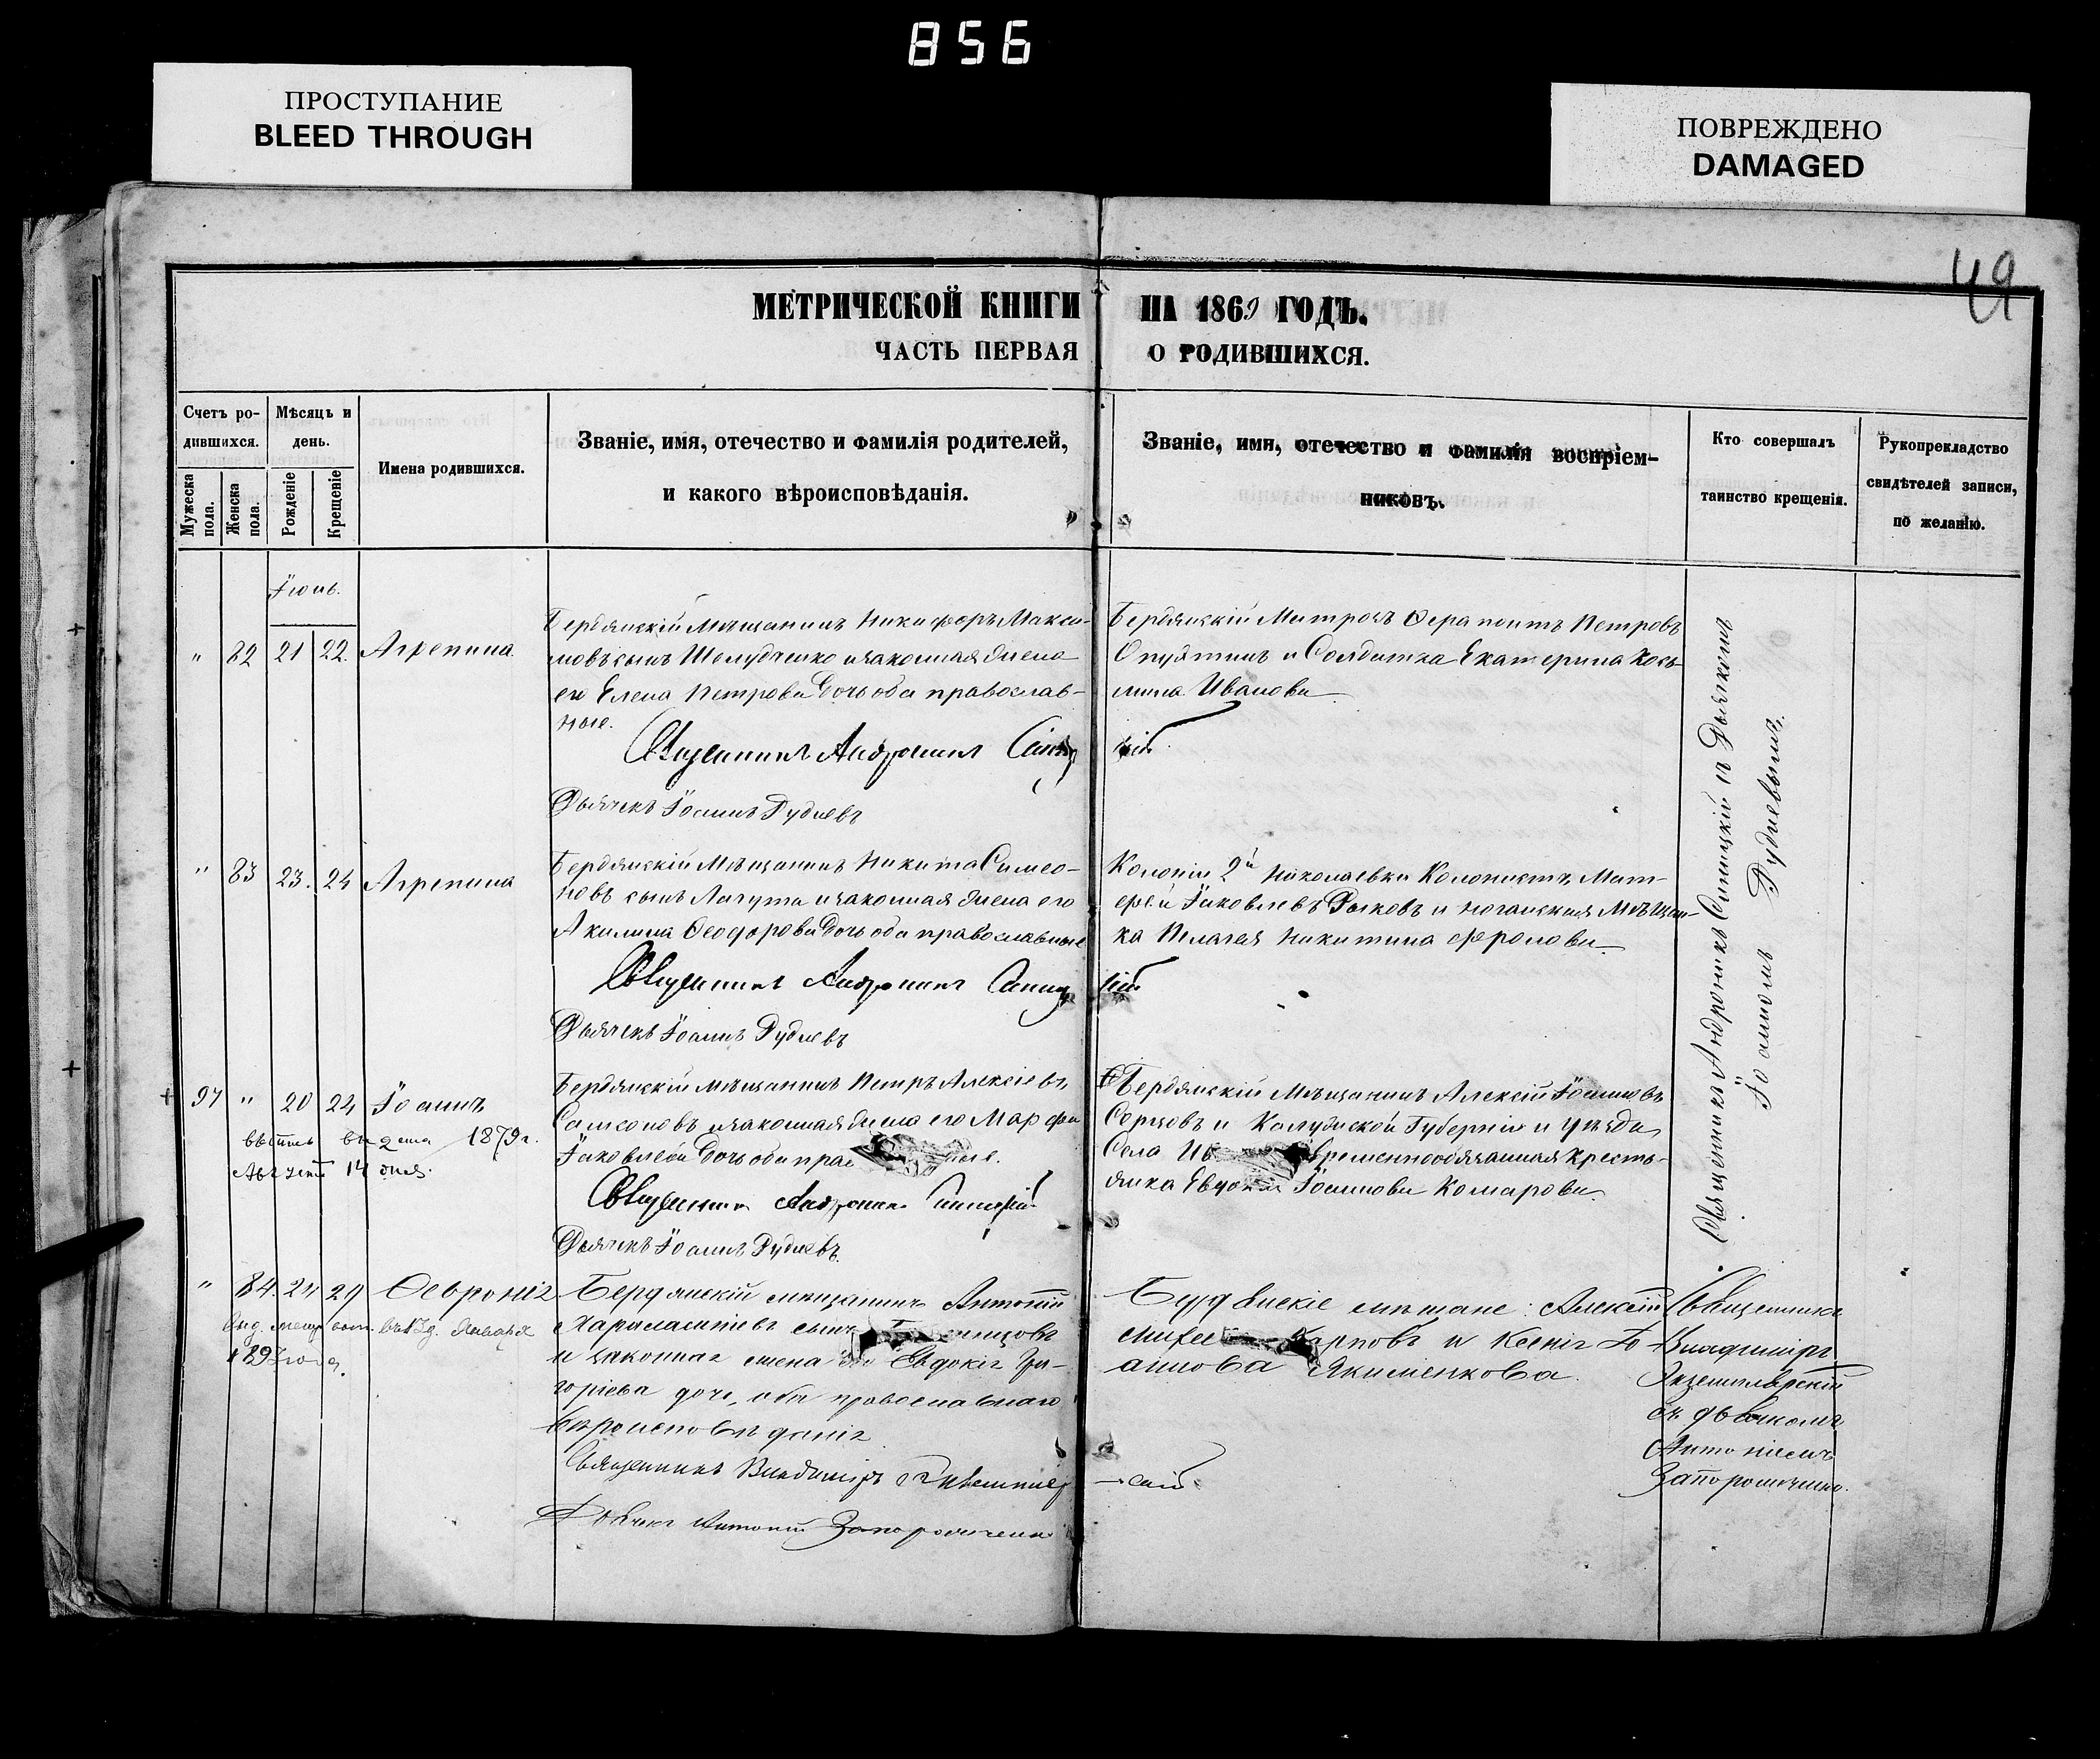 856
ПРОСТУПАНИЕ
BLEED THROUGH
ПОВРЕЖДЕНО
DAMAGED
49
МЕТРИЧЕСКОЙ КНИГИ НА 1869 ГОДЪ.
ЧАСТЬ ПЕРВАЯ О РОДИВШИХСЯ.
Счетъ ро-
дившихся.
Мужеска пола.
Женска пола.
Мѣсяцъ и
день.
Рожденіе
Крещеніе
Имена родившихся.
Званіе, имя, отечество и фамилія родителей,
и какого вѣроисповѣданія.
Званіе, имя, отечество и фамилія воспріем-
никовъ.
Кто совершалъ
таинство крещенія.
Рукоприкладство
свидѣтелей записи,
по желанію.
Іюнь.
" 82 21 22. Агрепина
Бердянскій Мѣщанинъ Никифоръ Макси-
мовъ сынъ Шелудченко и законная жена
его Елена Петрова дочь оба православ-
ные.
Священникъ Андроникъ Синицкій
Дьячекъ Іоаннъ Рудневъ
Бердянскій Матрозъ Ѳерапонтъ Петровъ
и Солдатка Екатерина Кось-
мина Иванова
Священникъ Андроникъ Синицкій съ Дьячкомъ
Іоанномъ Рудневымъ.
" 83 23. 24 Агрепина
Бердянскій Мѣщанинъ Никита Симео-
новъ сынъ и законная жена его
Акилина Ѳеодорова дочь оба православные
Священникъ Андроникъ Синицкій
Дьячекъ Іоаннъ Рудневъ
Колоніи 2й Николаевки Колонистъ Мат-
ѳей Іаковлевъ Рыковъ и Ногайская Мѣщан-
ка Пелагея Никитина Фролова
97 " 20 24 Іоаннъ
1879г.
Августа 14 дня.
Бердянскій мѣщанинъ Петръ Алексіевъ
Самсоновъ и законная жена его Марфа
Іаковлева дочь оба прав
Священникъ Андроникъ Синицкій
Дьячекъ Іоаннъ Рудневъ
Бердянскій Мѣщанинъ Алексій Іоанновъ
и Калужской Губерніи и Уѣзда
Села временнообязанная кресть-
янка Евдокія Іоаннова Комарова
" 84. 24 29 Ѳевронія
Выд. метр. 13 д. Января
Бердянскій мѣщанинъ Антоній
Харлампіевъ сынъ
и законная жена его Евдокія Гри-
горіева дочь, оба православнаго
вѣроисповѣданія
Священникъ Владиміръ
Дьячекъ Антоній Запорожченко
Бердянскіе мѣщане: Алексій
Карповъ и Ксенія Іо-
аннова Якименкова.
Священникъ
Владиміръ
съ дьячкомъ
Антоніемъ
Запорожченко.